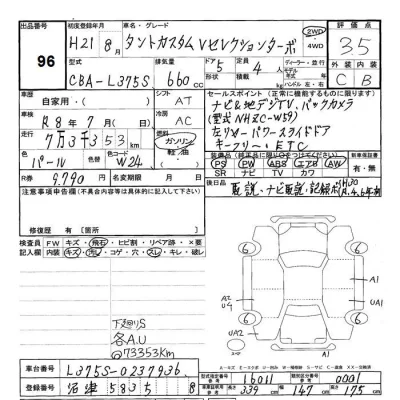 出品番号 96
初度登録年月 H21 8月
車名・グレード タントカスタム Vセレクションターボ
2WD 4WD
評価点 3.5
型式 CBA-L375S
排気量 660cc
ドア 5
定員 4人
モデル 年
ディーラー・並行
ハンドル 左・右
外装 内装
C B
車歴
自家用・( )
シフト AT
車検 R8年7月(日)
冷房 AC
走行 7万3千353km
燃料 ガソリン 軽油
色 パール
色コード W24
R券 9,790円
積載量
セールスポイント(正常に機能するものに限ります)
ナビ&地デジTV、バックカメラ
(型式NHZC-W59)
左リヤーパワースライドドア
キーフリー・ETC
PS PW ABS エアB AW
SR ナビ TV カワ
新車保証書
有・無
後日品 取説、ナビ取説、記録ボ
注意事項申告欄(不具合内容等は具体的に記入して下さい)
修復歴 有 [箇所 ]
検査員記入欄
FW キズ・飛石・ヒビ割・リペア跡・×要
内装 キズ・汚レ・コゲ・穴・スレ・キレ・破レ
下廻りS
各A.U
@73353Km
A2
U4
A1
UA1
UA2
A1
車台番号 L375S-0237936
登録番号 沼津 583 ち 8
型式指定番号 16011
類別区分番号 0001
長さ 339cm
幅 147cm
高さ 175cm